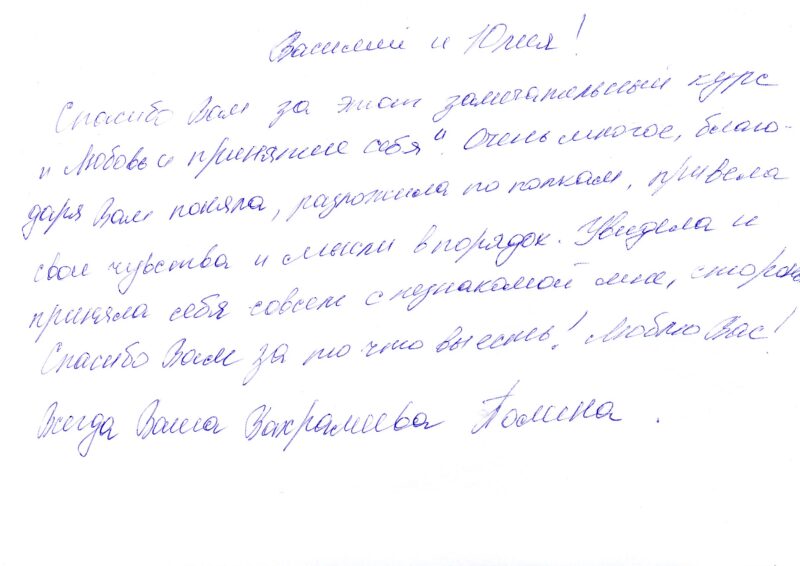 Василий и Юлия!
Спасибо Вам за этот замечательный курс
"Любовь и принятие себя". Очень многое, благо-
даря Вам поняла, разложила по полкам, привела
свои чувства и мысли в порядок. Увидела и
приняла себя совсем с незнакомой мне, стороны
Спасибо Вам за то что вы есть! Люблю Вас!
Всегда Ваша Вахрамеева Полина.